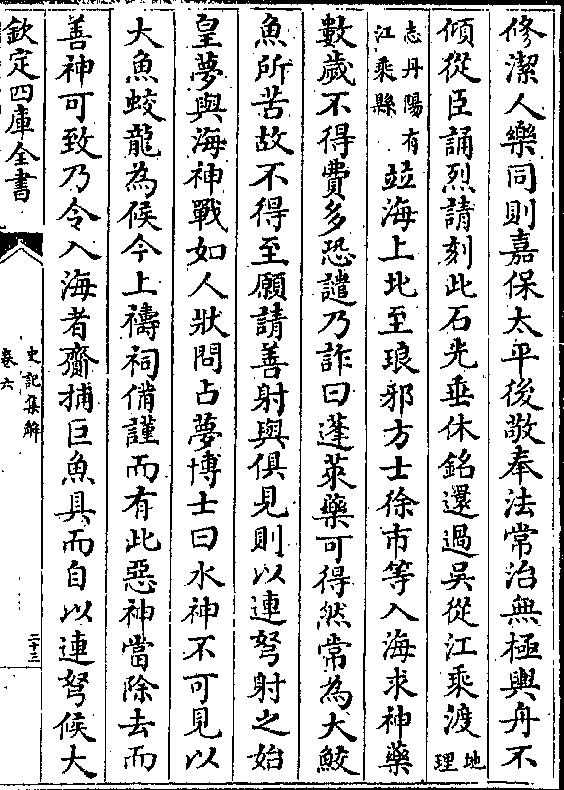 修潔人樂同則嘉保太平後敬奉法常治無極輿舟不
傾從臣誦烈請刻此石光垂休銘還過吳從江乘渡地理
志丹陽有江乘縣並海上北至琅邪方士徐巿等入海求神藥
數歲不得費多恐譴乃詐曰蓬萊藥可得然常為大鮫
魚所苦故不得至願請善射與俱見則以連弩射之始
皇夢與海神戰如人狀問占夢博士曰水神不可見以
大魚蛟龍為候今上禱祠備謹而有此惡神當除去而
善神可致乃令入海者齎捕巨魚具而自以連弩候大
欽定四庫全書
史記集解
卷六
二十三